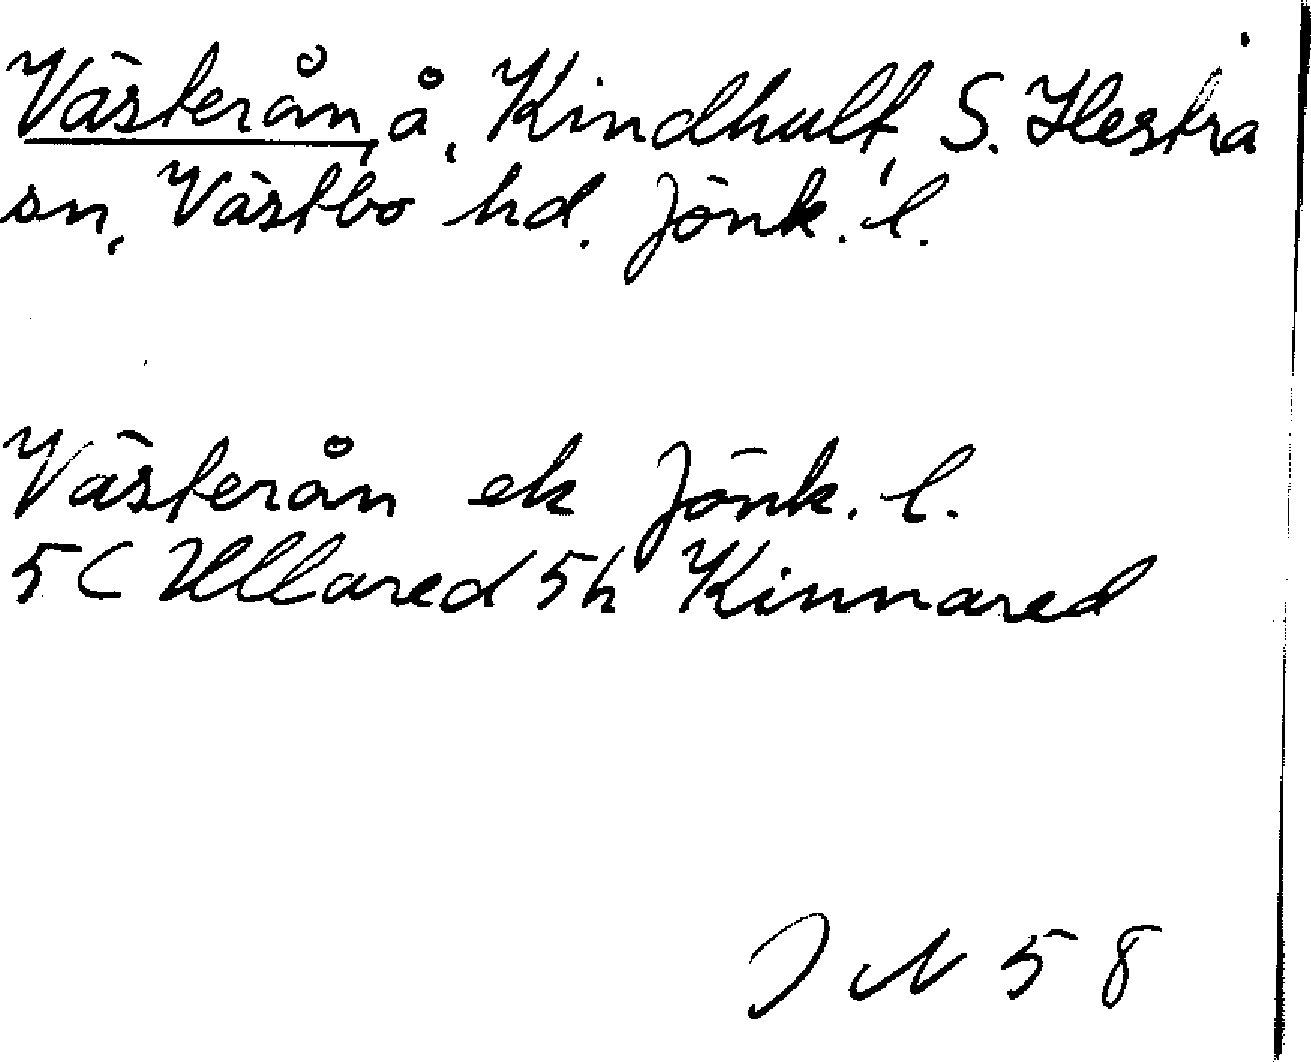 Västerån, å, Kindhult, S. Hestra
sn, Västbo hd. Jönk. l.
Västerån ek Jönk. l.
5C Ullared 5h Kinnared